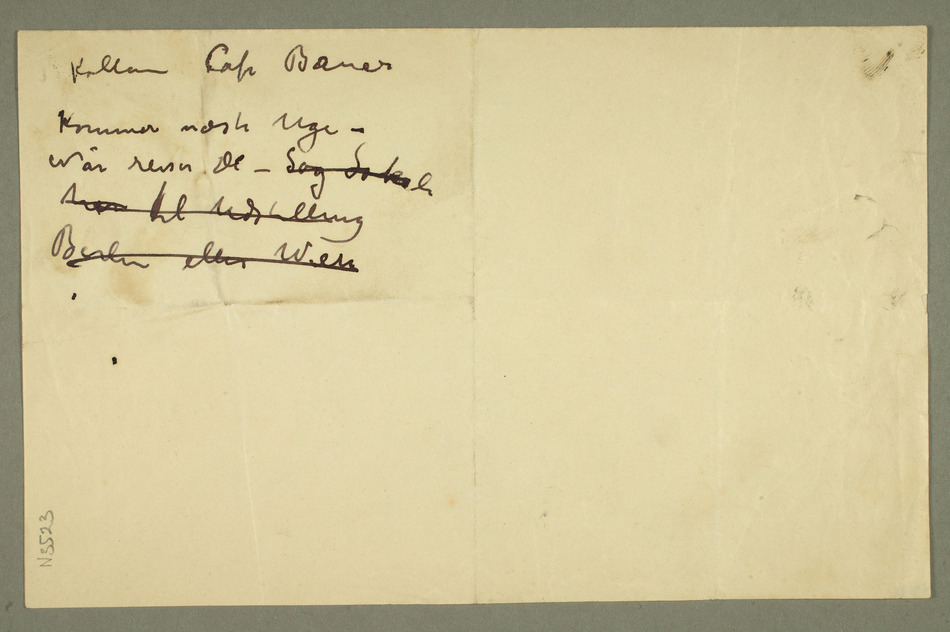 Kollmann Café Bauer
Kommer næste Uge –
når reiser De – Sag
til Udstilling
Berlin eller Wien
N3523